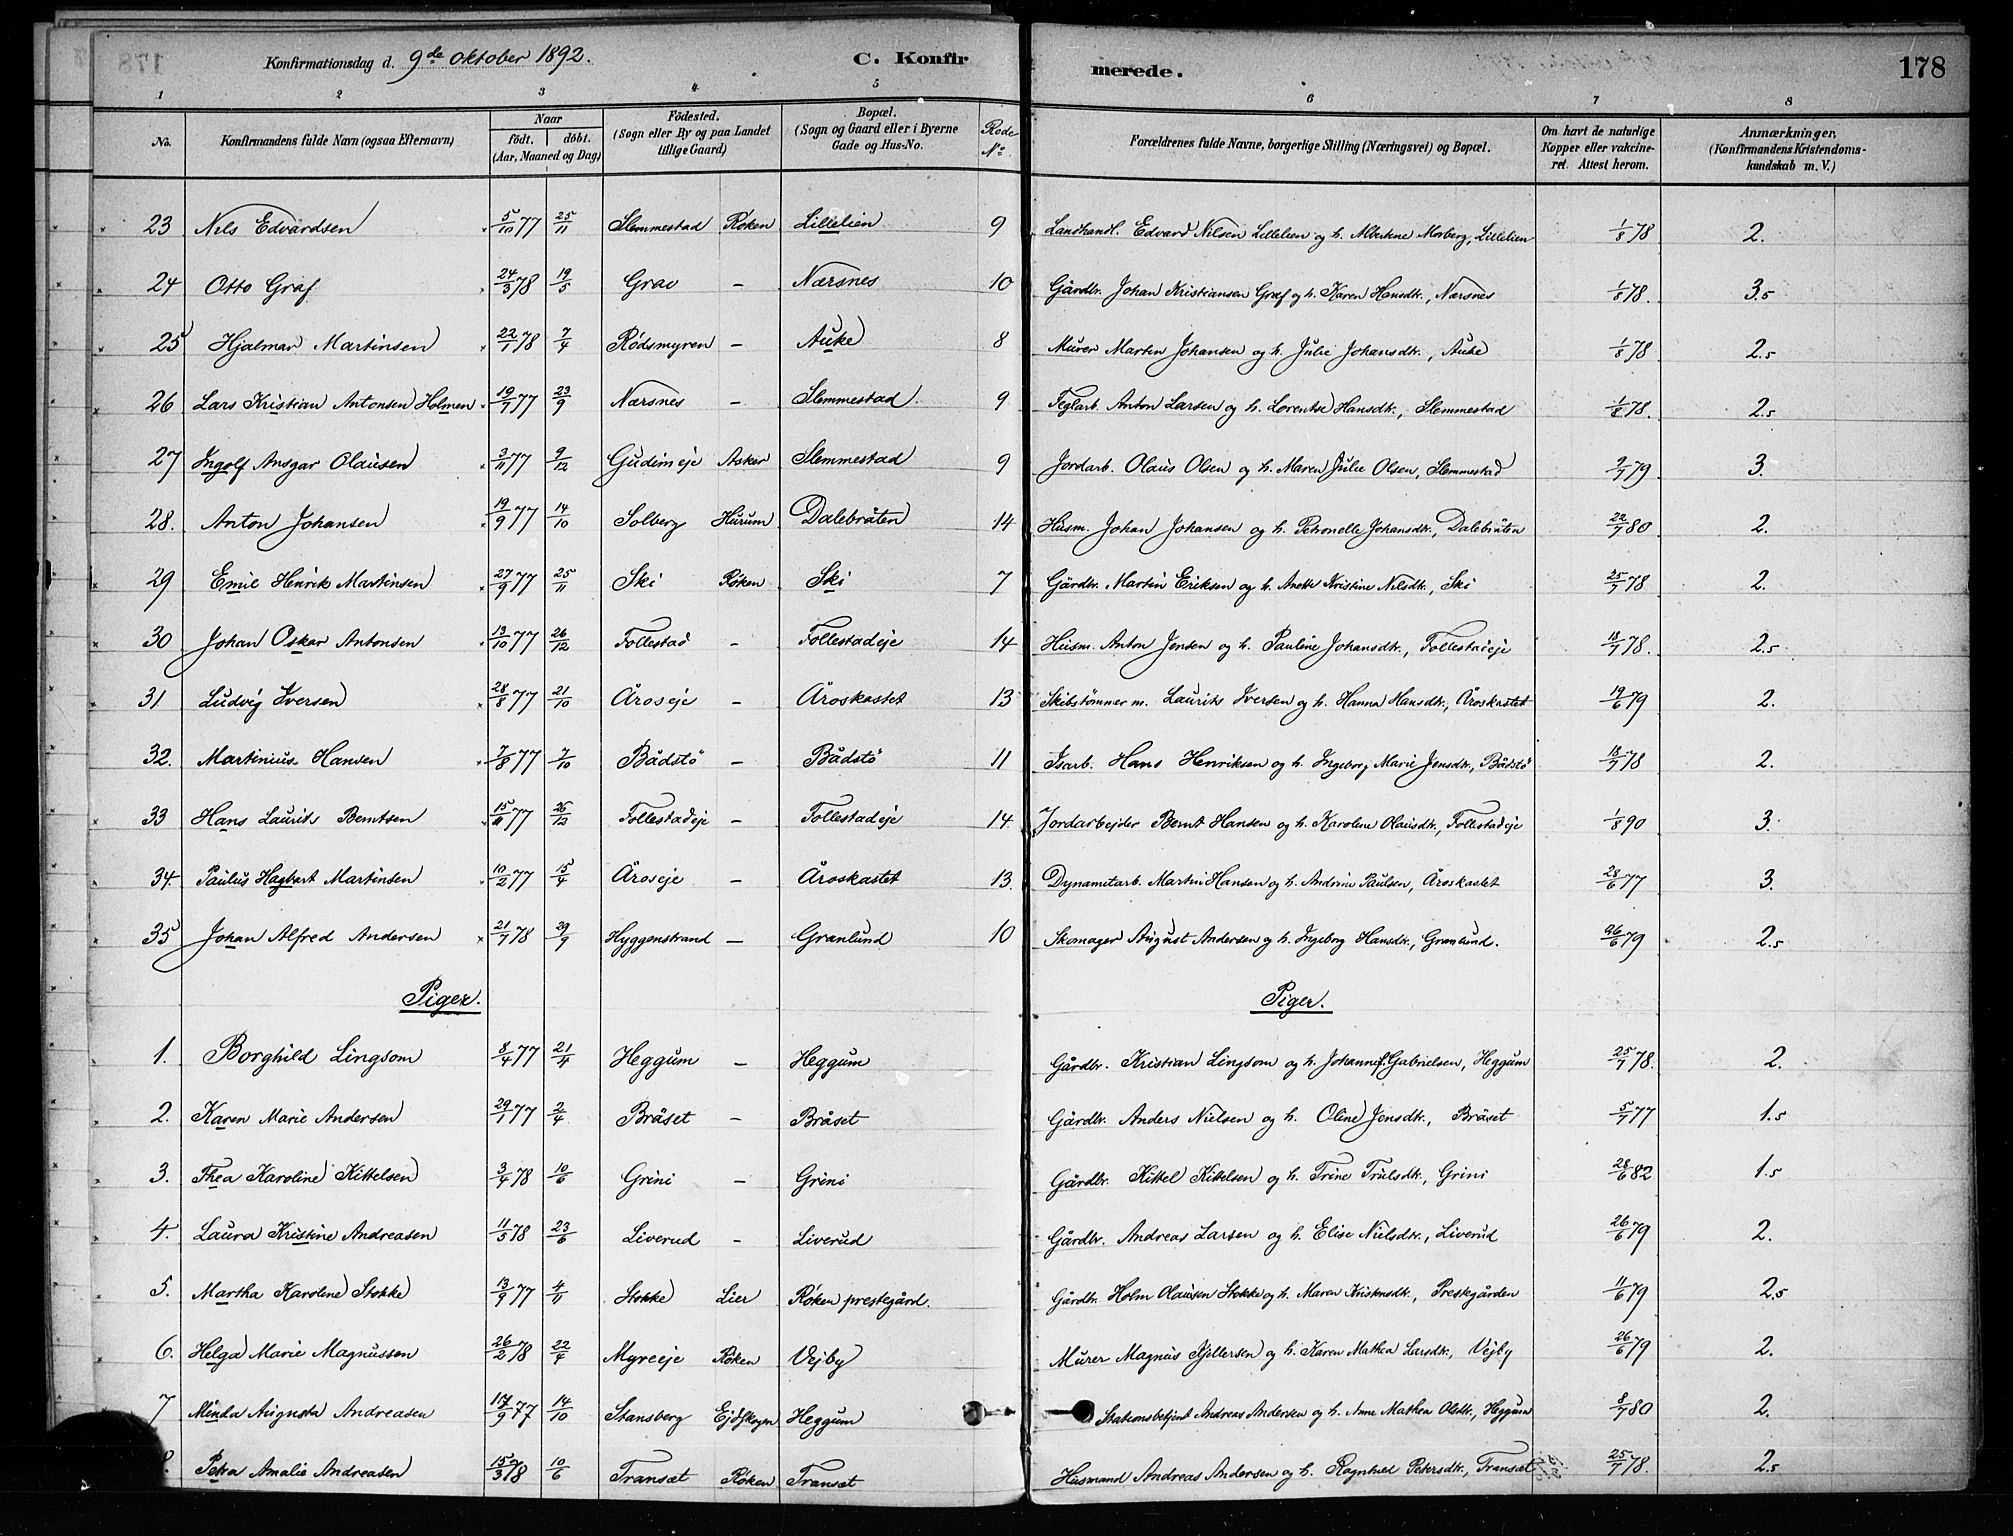 Konfirmationsdag d. 9de oktober 1892. C. Konfirmerede. 178
1 2 3 4 5 6 7 8
No. Konfirmandens fulde Navn (ogsaa Efternavn) Naar født. døbt. (Aar, Maaned og Dag) Fødested. (Sogn eller By og paa Landet tillige Gaard) Bopæl. (Sogn og Gaard eller i Byerne Gade og Hus-No. Rode No. Forældrenes fulde Navne, borgerlige Stilling (Næringsvei) og Bopæl. Om havt de naturlige Kopper eller vakcineret. Attest herom. Anmærkninger, (Konfirmandens Kristendomskundskab m. V.)
23 Nels Edvardsen 5/10 77 25/11 Slemmestad Røken Lillelien 9 Landhandl. Edvard Nilsen Lillelien og h. Albertine Morberg, Lillelien 1/8 78 2.
24 Otto Graf 24/3 78 19/5 Grav – Nærsnes 10 Gårdbr. Johan Kristiansen Graf og h. Karen Hansdtr., Nærsnes 1/8 78. 3.5
25 Hjalmar Martinsen 22/1 78 7/4 Rødsmyren – Auke 8 Murer Martin Johansen og h. Julie Johansdtr., Auke 1/8 78 2.5
26 Lars Kristian Antonsen Holmen 19/7 77 23/9 Nærsnes – Slemmestad 9 Teglarb. Anton Larsen og h. Lorentse Hansdtr., Slemmestad 1/8 78. 2.5
27 Ingolf Ansgar Olausen 3/11 77 9/12 Gudimeje Asker Slemmestad 9 Jordarb. Olaus Olsen og h. Maren Julie Olsen, Slemmestad 9/7 79 3.
28. Anton Johansen 19/9 77 14/10 Solberg Hurum Dalebråten 14 Husm. Johan Johansen og h. Petronelle Johansdtr., Dalebråten 22/7 80 2.
29 Emil Henrik Martinsen 27/9 77 25/11 Ski Røken Ski 7 Gårdbr. Martin Eriksen og h. Anette Kristine Nilsdtr., Ski 25/7 78 2.
30 Johan Oskar Antonsen 13/10 77 26/12 Follestad – Follestadeje 14 Husm. Anton Jensen og h. Pauline Johansdtr., Follestadeje 18/7 78. 2.5
31 Ludvig Iversen 28/8 77 21/10 Åroseje – Åroskastet 13 Skibstømmerm. Laurits Iversen og h. Hanna Hansdtr., Åroskastet 19/6 79 2.
32. Martinius Hansen 7/8 77 7/10 Bådstø – Bådstø 11 Isarb. Hans Henriksen og h. Ingeborg Marie Jensdtr., Bådstø 18/7 78 2.
33 Hans Laurits Berntsen 15/11 77 26/12 Follestadeje – Follestadeje 14. Jordarbejder Bernt Hansen og h. Karoline Olausdtr., Follestadeje 1/8 90 3.
34. Paulus Hagbart Martinsen 10/2 77 15/4 Åroseje – Åroskastet 13. Dynamitarb. Martin Hansen og h. Andrine Paulsen, Åroskastet 28/6 77 3.
35 Johan Alfred Andersen 21/7 78 29/9 Hyggenstrand – Granlund 10 Skomager August Andersen og h. Ingeborg Hansdtr., Granlund. 26/6 79 2.5
Piger. Piger.
1. Borghild Lingsom 8/4 77 21/4 Heggum – Heggum Gårdbr. Kristian Lingsom og h. Johanne f. Gabrielsen, Heggum 25/7 78. 2.
2. Karen Marie Andersen 29/1 77 2/4 Bråset – Bråset Gårdbr. Anders Nielsen og h. Oline Jensdtr., Bråset 5/7 77 1.5
3. Thea Karoline Kittelsen 3/4 78 10/6 Grini – Grini Gårdbr. Kittel Kittelsen og h. Trine Trulsdtr., Grini 28/6 82 1.5
4. Laura Kristine Andreasen 11/5 78 23/6 Liverud – Liverud Gårdbr. Andreas Larsen og h. Elise Nielsdtr., Liverud 26/6 79 2.
5. Martha Karoline Stokke 13/9 77 4/11 Stokke Lier Røken prestegård. Gårdbr. Holm Olausen Stokke og h. Maren Kristensdtr., Prestegården 11/6 79 2.5
6. Helga Marie Magnussen 26/2 78 22/4 Myreeje Røken Vejby Murer Magnus Kjellersen og h. Karen Mathea Larsdtr., Vejby 26/6 79 2.
7 Minda Augusta Andreasen 17/9 77 14/10 Stansberg Ejdskogen Heggum Stationsbetjent Andreas Andersen og h. Anne Mathea Olsdtr., Heggum 8/7 80 2.
8. Petra Amalie Andreasen 15/3 78 10/6 Transæt Røken Transæt Husmand Andreas Andersen og h. Ragnhild Petersdtr., Transæt 25/7 78. 2.5